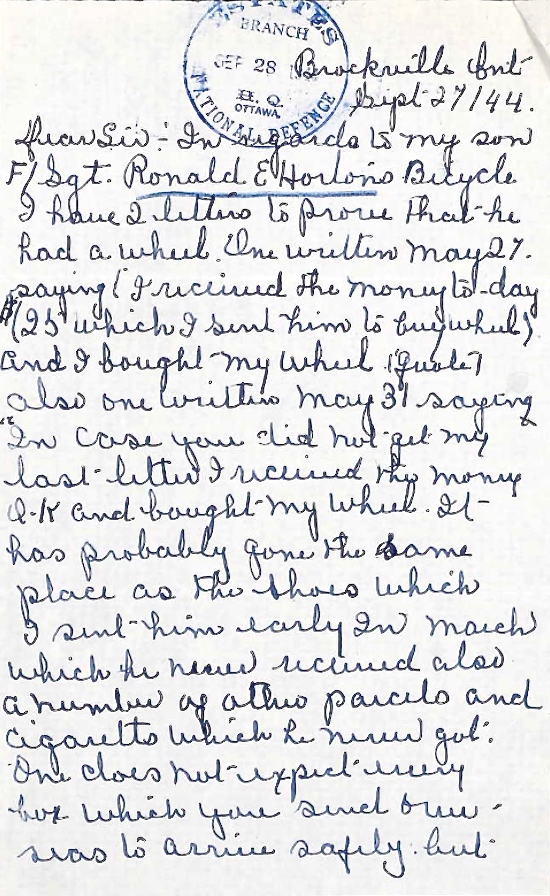 ESTATES
BRANCH
SEP 28
H. Q.
OTTAWA.
NATIONAL DEFENCE
Brockville Ont
Sept 27/44.
Dear Sir:- In regards to my son
F/Sgt. Ronald E Hortons Bicycle
I have 2 letters to prove that he
had a wheel. One written May 27.
saying (I received the money to-day
$(25 which I sent him to buy wheel)
and I bought my wheel (quote)
also one written May 31 saying
"In case you did not get my
last letter I received the money
O-K and bought my wheel. It
has probably gone the same
place as the shoes which
I sent him early In March
which he never received also
a number of other parcels and
cigaretts which he never got.
One does not expect every
box which you send over-
seas to arrive safely. but